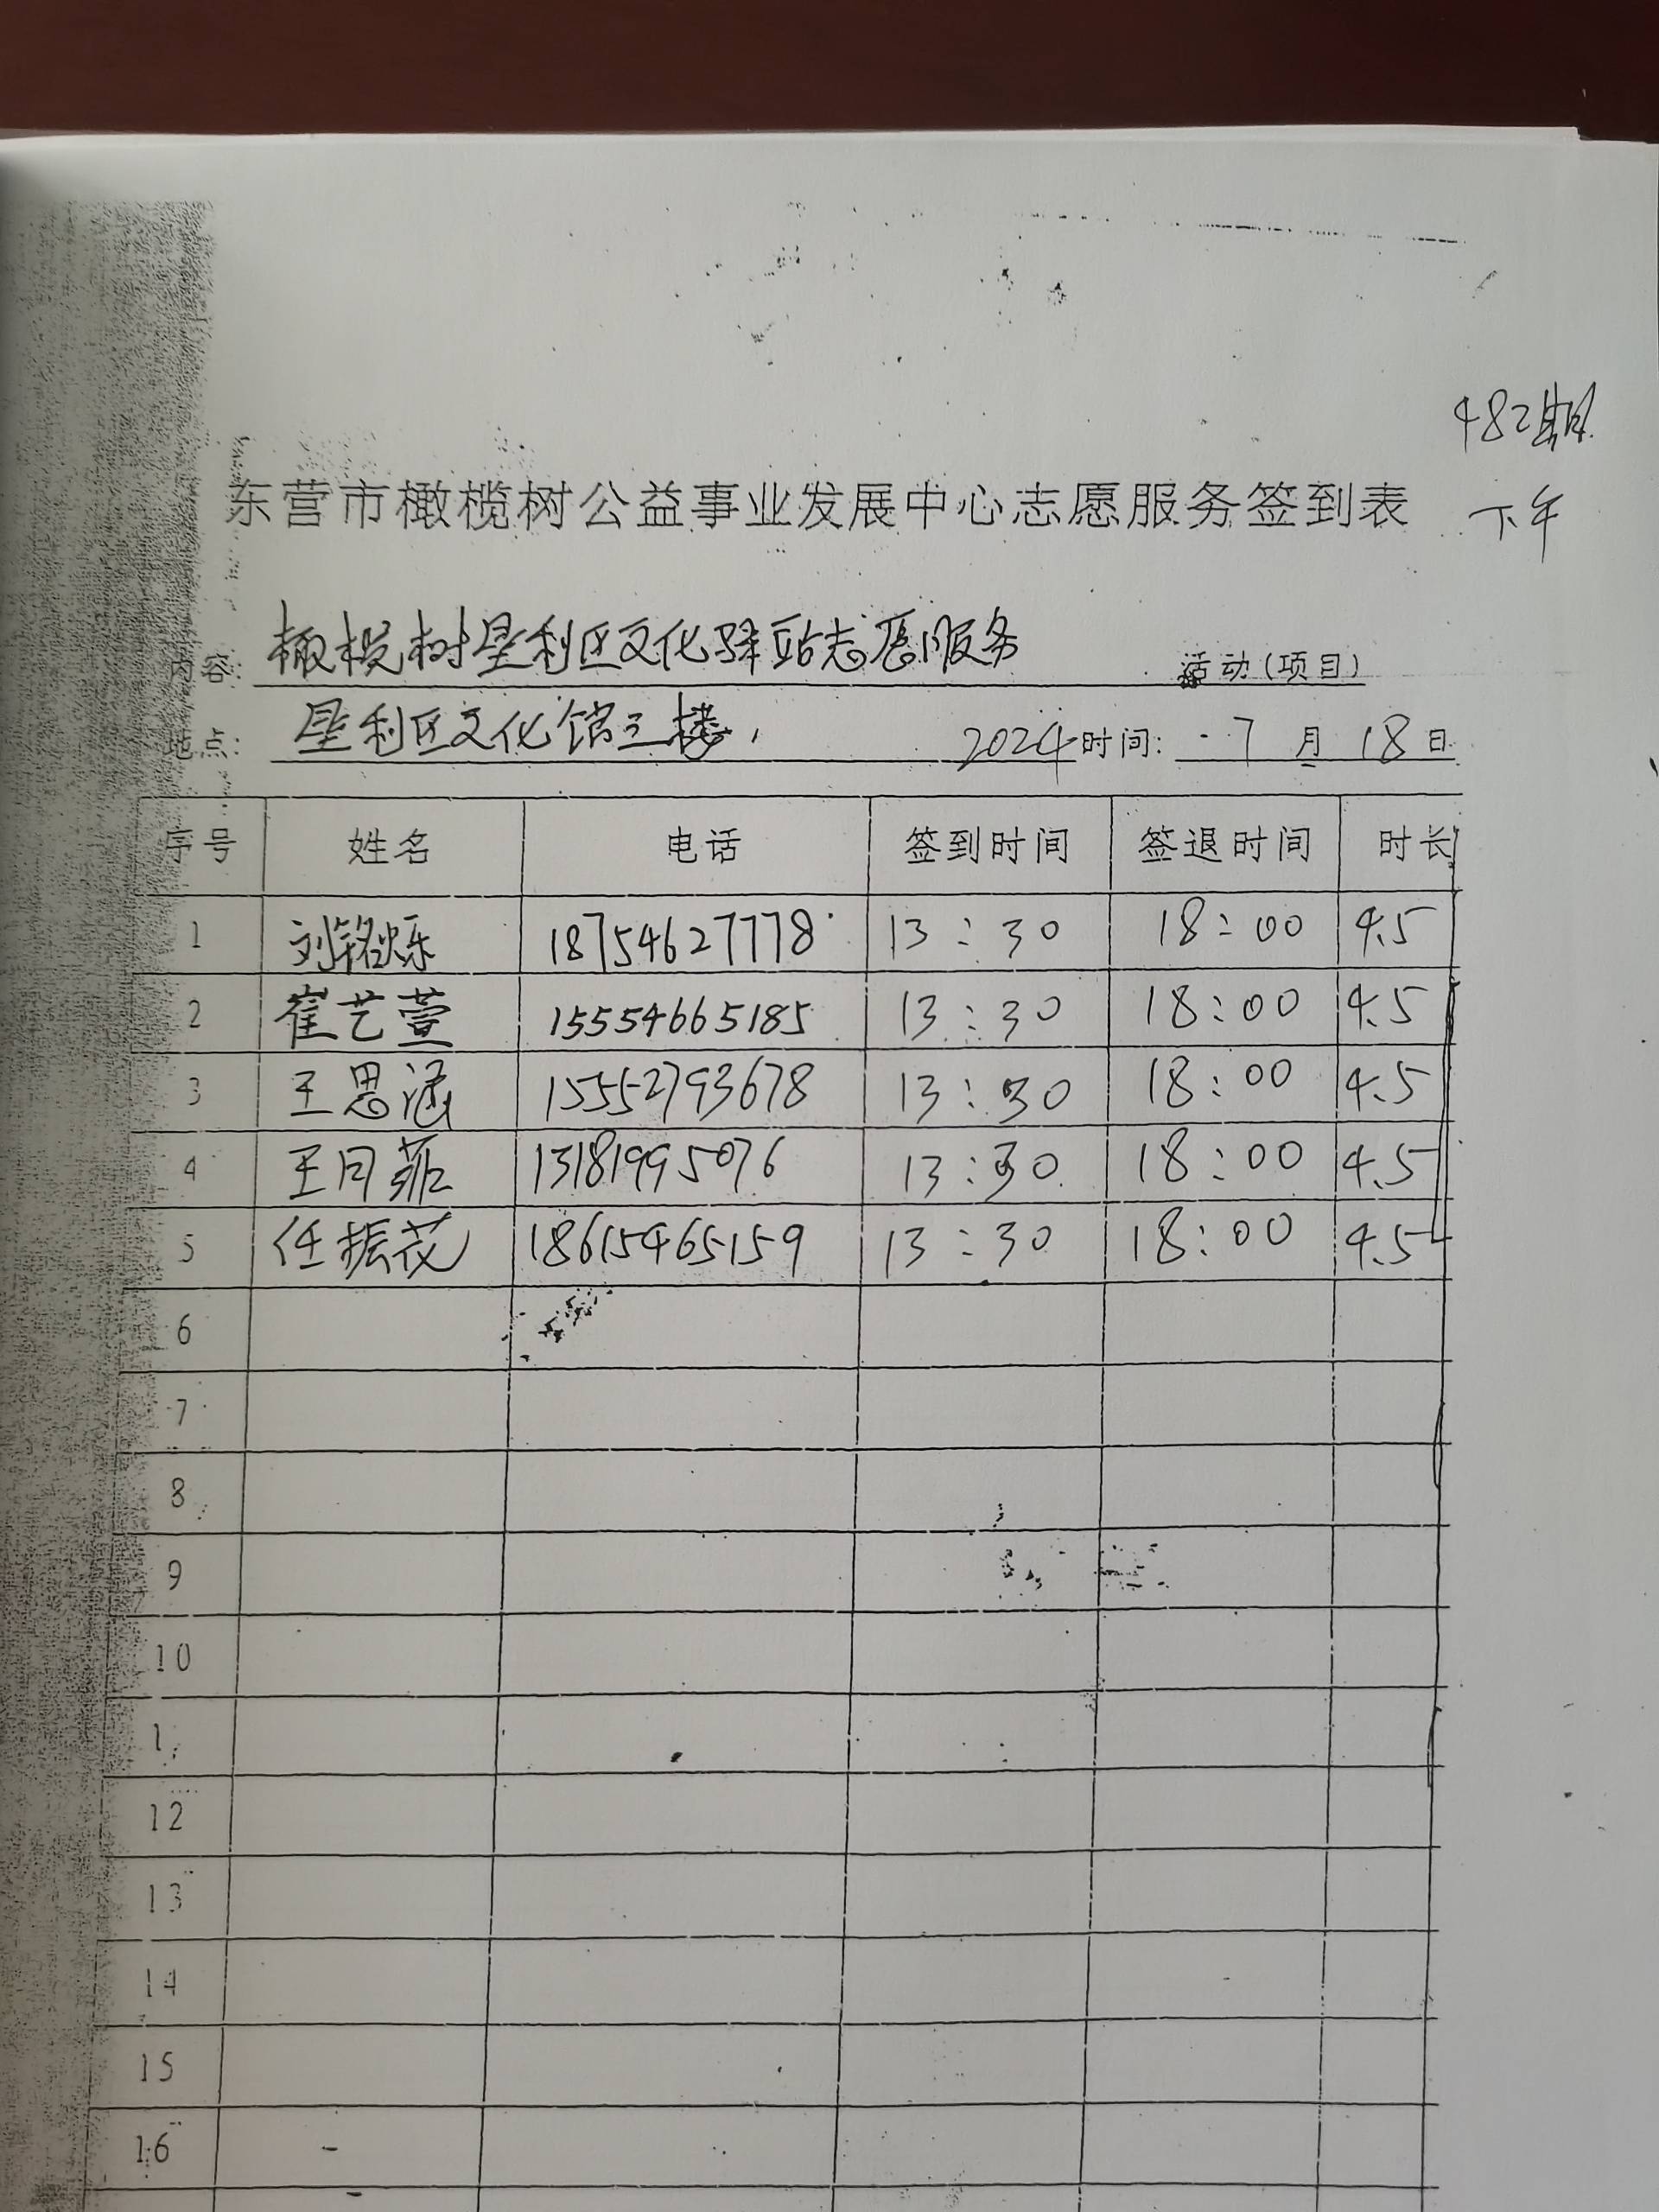 482期
东营市橄榄树公益事业发展中心志愿服务签到表 下午
内容: 橄榄树垦利区文化驿站志愿服务 活动(项目)
地点: 垦利区文化馆三楼 2024时间: 7 月 18 日
序号 姓名 电话 签到时间 签退时间 时长
1 刘铭烁 18754627778 13:30 18:00 4.5
2 崔艺萱 15554665185 13:30 18:00 4.5
3 王思涵 15552793678 13:30 18:00 4.5
4 王月菲 13181995076 13:30 18:00 4.5
5 任振花 18615465159 13:30 18:00 4.5
6
7
8
9
10
1
12
13
14
15
16